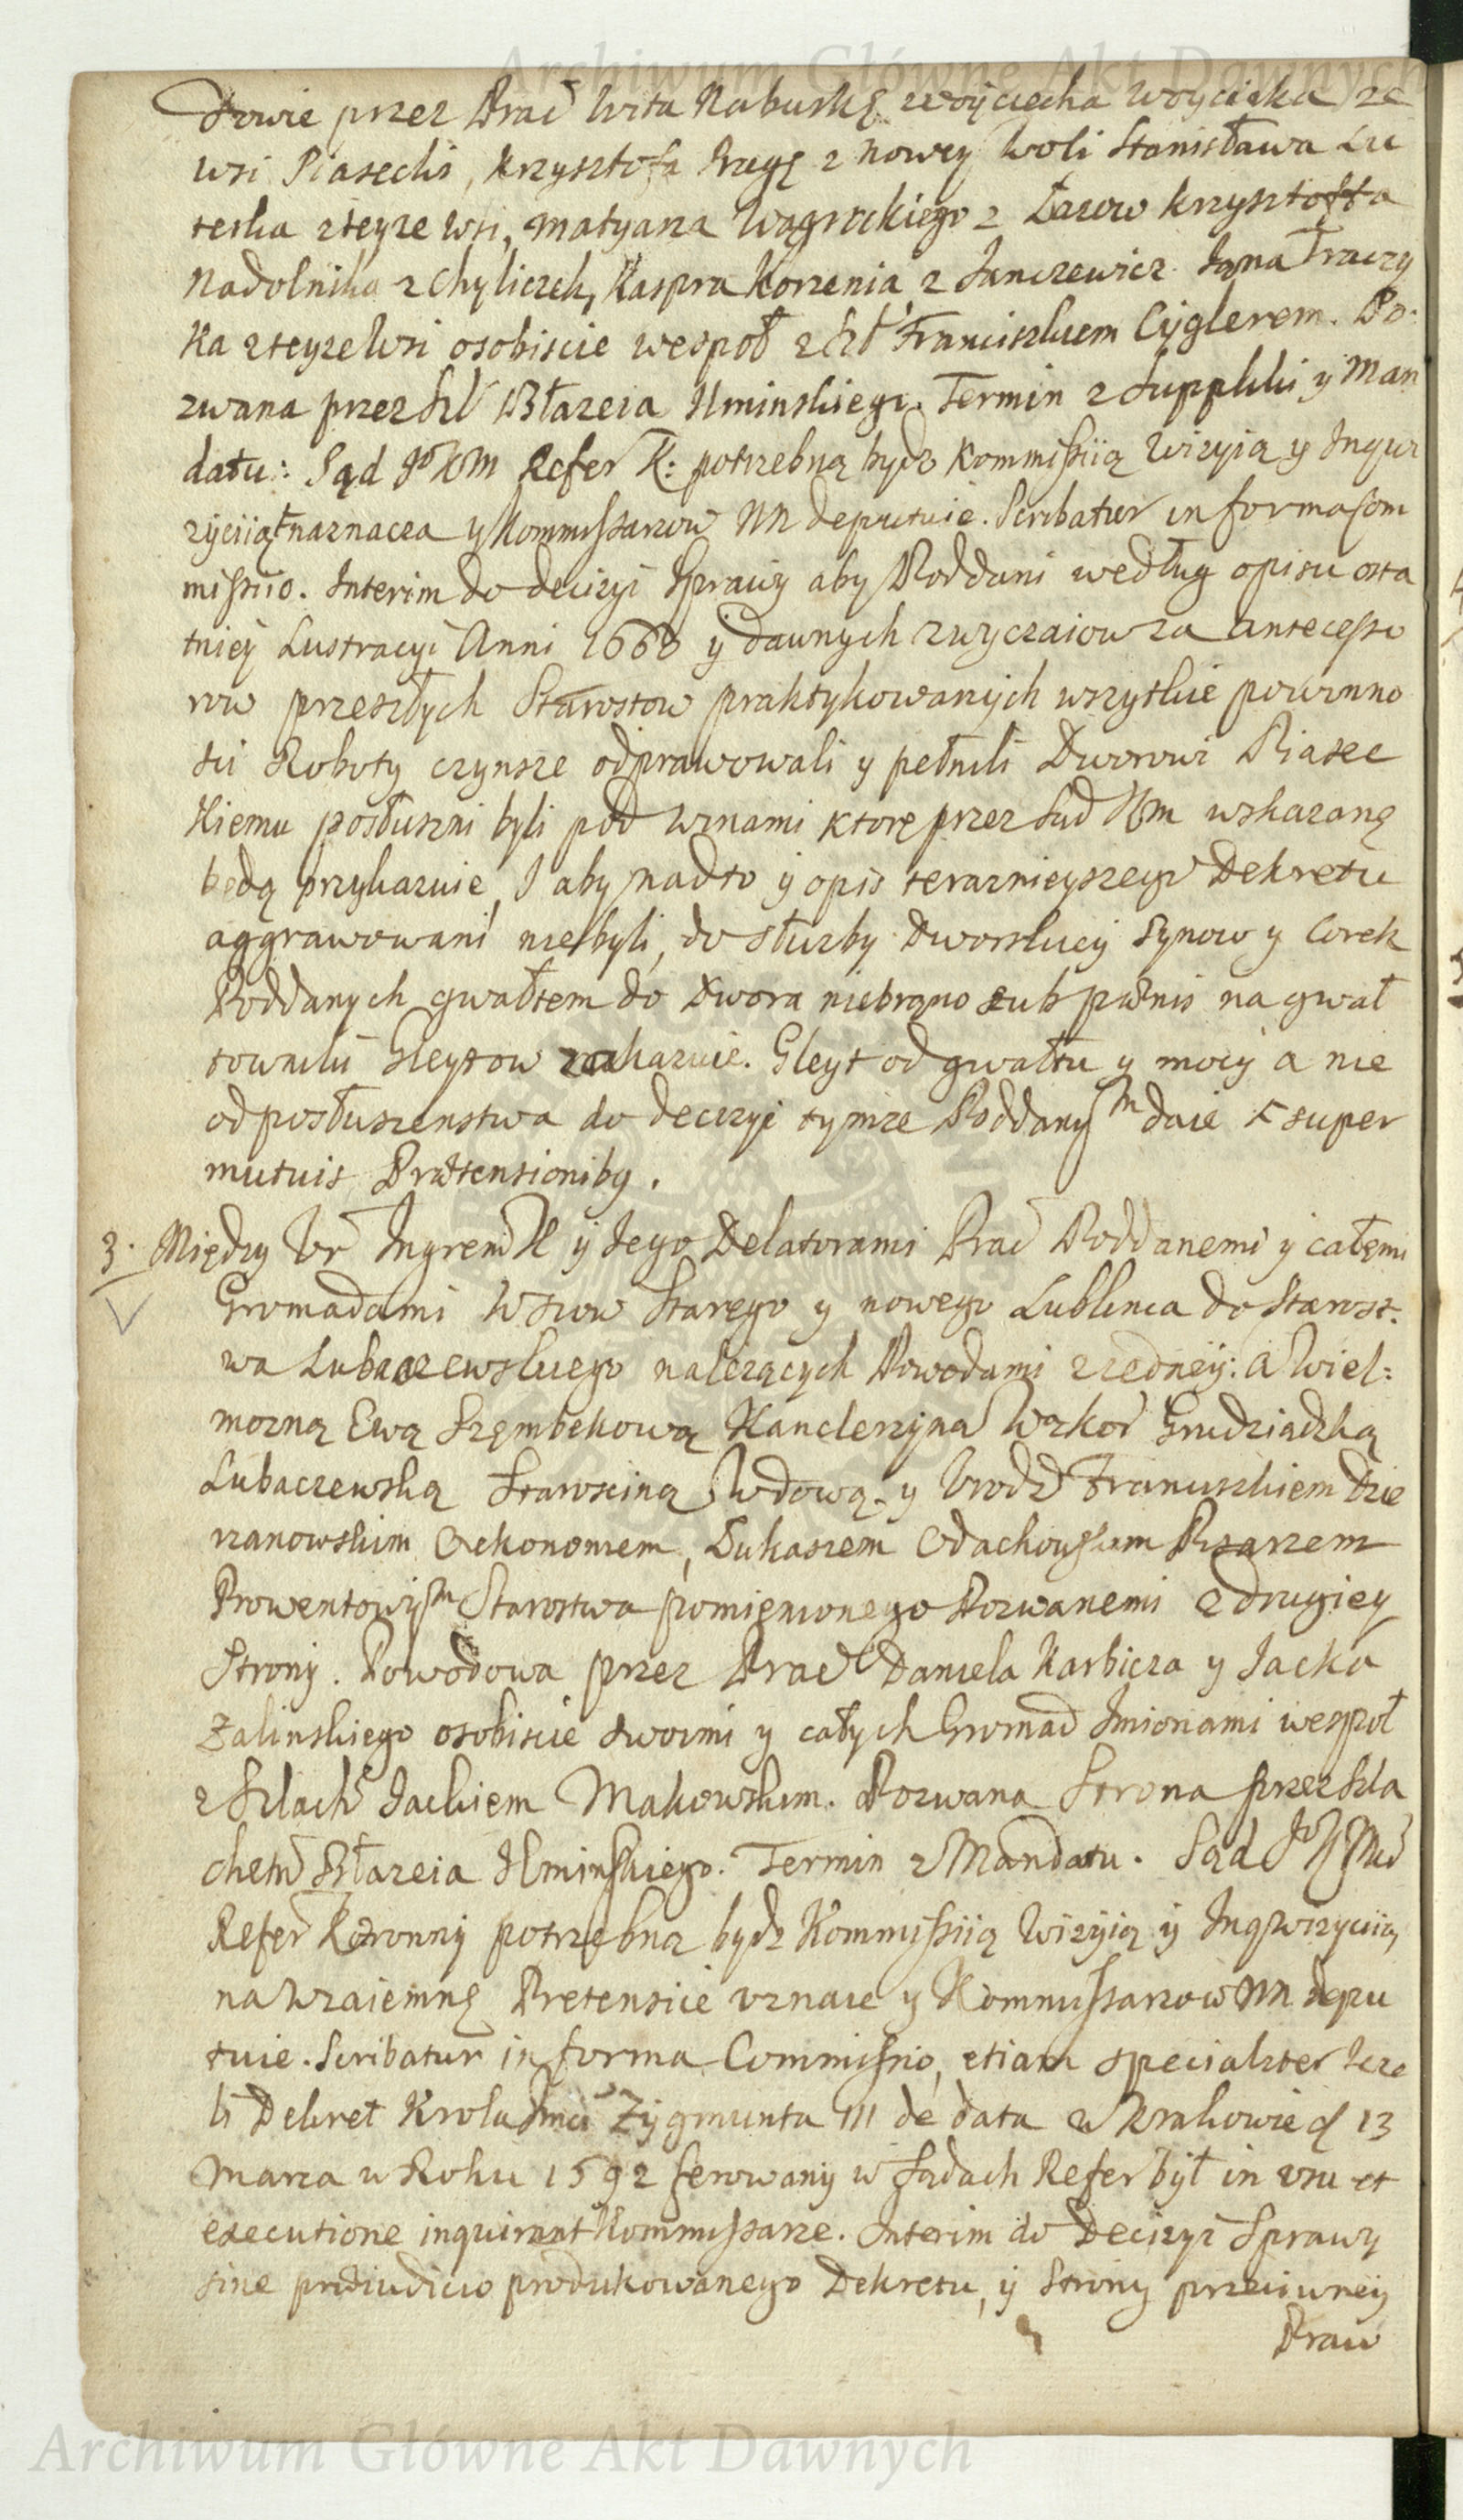 Archiwum Główne Akt Dawnych
dowie przez Prac Wita Kabuskę Woyciecha Woycieka ze
wsi Piasecki, Krzysztofa Fragę z Nowey Woli Stanisława Lu
terka zteyze wsi, Matyasza Wągrockiego z Łazow Krzysztoffa
Nadolnika z Chyliczek, Kaspra Korzenia z Janczewicz Jana Traczy
ka zteyze Wsi osobiscie wespoł z Szl Franciszkiem Cyglerem. Po
zwana przez Szl Błazeia Ilminskiego. Termin z Suppliki y Man
datu: Sąd JoKM Refer K: potrzebną bydz Kommissiią Wizyią y Inqui
zyciią naznacza y Kommissarzow NN deputuie. Scribatur in forma Com
missio. Interim do decizyi Sprawy aby Poddani według opisu osta
tniey Lustracyi Anni 1668 y dawnych zwyczaiow za antecesso
row przeszłych Starostow praktykowanych wszytkie powinno
sci Roboty czynsze odprawowali y pełnili Dworowi Piasec
kiemu posłuszni byli pod winami ktore przez Sąd NM wskazane
będą przykazuie, I aby nadto y opis terazniejszego Dekretu
aggrawowani niebyli, do służby Dworskiey Synow y Corek
Poddanych gwałtem do Dwora niebrano sub pænis na gwał
townikī Gleytow zakazuie. Gleyt od gwałtu y mocy a nie
od posłuszenstwa do decizyi tymze Poddanym daie super
mutuis Prætensionibg.
3. Między Ur Ingremi K y Jego Delatorami Prac Poddanemi y całemi
Gromadami Wsiow Starego y nowego Lublinca do Starost-
wa Lubaczewskiego należących Powodami z iedney: a Wiel:
mozną Ewą Szembekową Kanclerzyną W Kor Grudziądzką
Lubaczewską Starosciną Wdową y Urodz Franciszkiem Dzie
rzanowskim Oekonomem, Łukaszem Odachowskim Pisarzem
Prowentowym Starostwa pomienionego Pozwanemi z drugiey
Strony. Powodowa przez Prac Daniela Karbicza y Jacka
Zalinskiego osobiscie swoimi y całych Gromad Imionami wespoł
z Szlach Jackiem Makowskim. Pozwana Strona przez Szla
chetn Błazeia Ilminskiego. Termin z Mandatu. Sąd JoKMci
Refer Koronny potrzebną bydz Kommissiią Wizyią y Inqwizyciią
na Wzaiemne Pretensiie uznaie y Kommissarzow NN depu
tuie. Scribatur in forma Commissio, etiam specialiter Jeze
li Dekret Krola Jmci Zygmunta III de data w Krakowie d 13
Marca w Roku 1592 ferowany w Sądach Refer był in usu et
executione inquirant Kommissarze. Interim do Decizyi Sprawy
sine præiudicio produkowanego Dekretu, y Strony przeciwney
Praw
Archiwum Główne Akt Dawnych